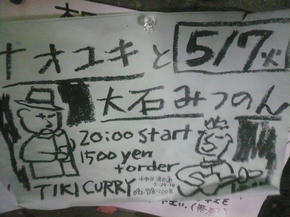 ナオユキと 5/7火
大石みつのん
20:00 start
1500 yen
+order
TIKI CURRY